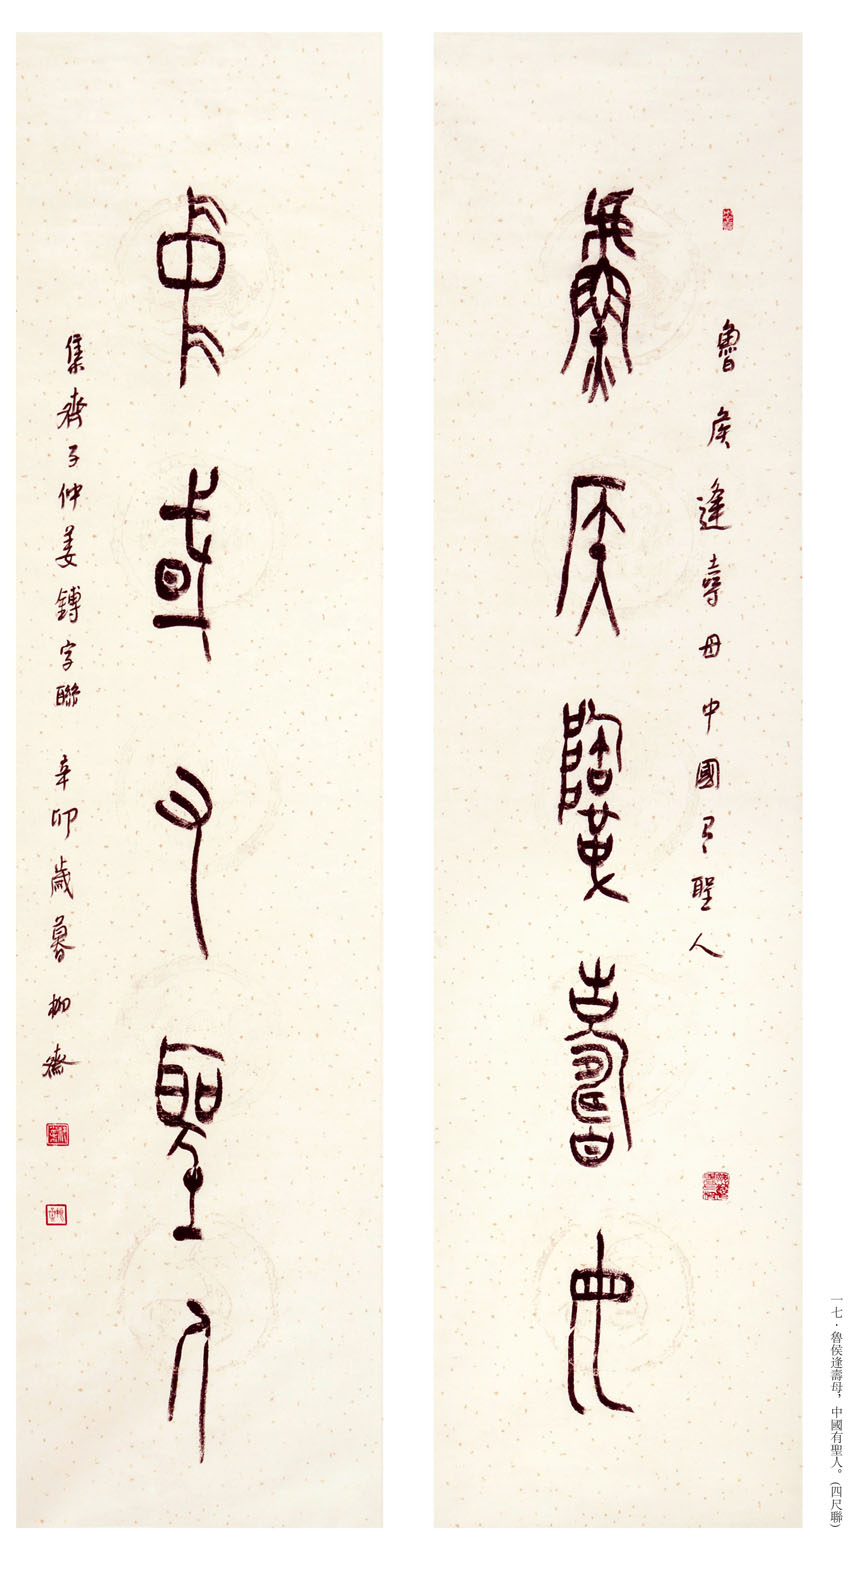 魯侯逢壽母中國有聖人
魯侯逢壽母
中國有聖人
集齊子仲姜鎛字聯 辛卯歲暮 柳齋
一七·魯侯逢壽母，中國有聖人。(四尺聯)